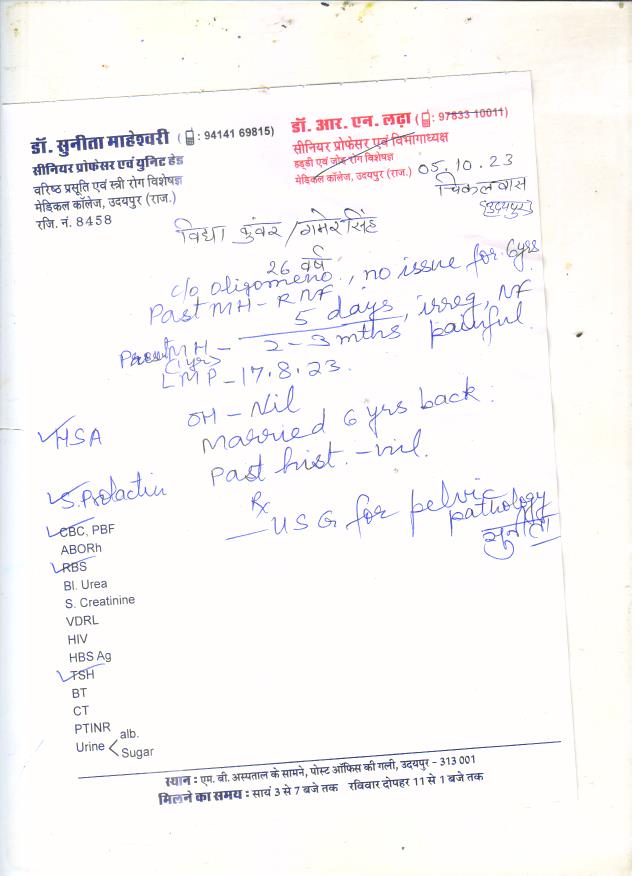 डॉ. सुनीता माहेश्वरी ( : 94141 69815)
सीनियर प्रोफेसर एवं युनिट हेड
वरिष्ठ प्रसूति एवं स्त्री रोग विशेषज्ञ
मेडिकल कॉलेज, उदयपुर (राज.)
रजि. नं. 8458
डॉ. आर. एन. लढ़ा ( : 97833 10011)
सीनियर प्रोफेसर एवं विभागाध्यक्ष
हड्डी एवं जोड़ रोग विशेषज्ञ
मेडिकल कॉलेज, उदयपुर (राज.)
05.10.23
चिकलवास
(उदयपुर)
विद्या कुंवर / गमेरसिंह
26 वर्ष
c/o oligomeno., no issue for 6yrs
Past MH - RNF
Present MH - 5 days / 2-3 mths, irreg, NF painful.
(1 yr)
LMP - 17.8.23.
OH - Nil
Married 6 yrs back.
Past hist. - nil.
Rx
— USG for pelvic pathology
सुनीता
HSA
S. Prolactin
CBC, PBF
ABORh
RBS
Bl. Urea
S. Creatinine
VDRL
HIV
HBS Ag
TSH
BT
CT
PTINR
Urine < alb.
Sugar
स्थान : एम. बी. अस्पताल के सामने, पोस्ट ऑफिस की गली, उदयपुर - 313 001
मिलने का समय : सायं 3 से 7 बजे तक रविवार दोपहर 11 से 1 बजे तक